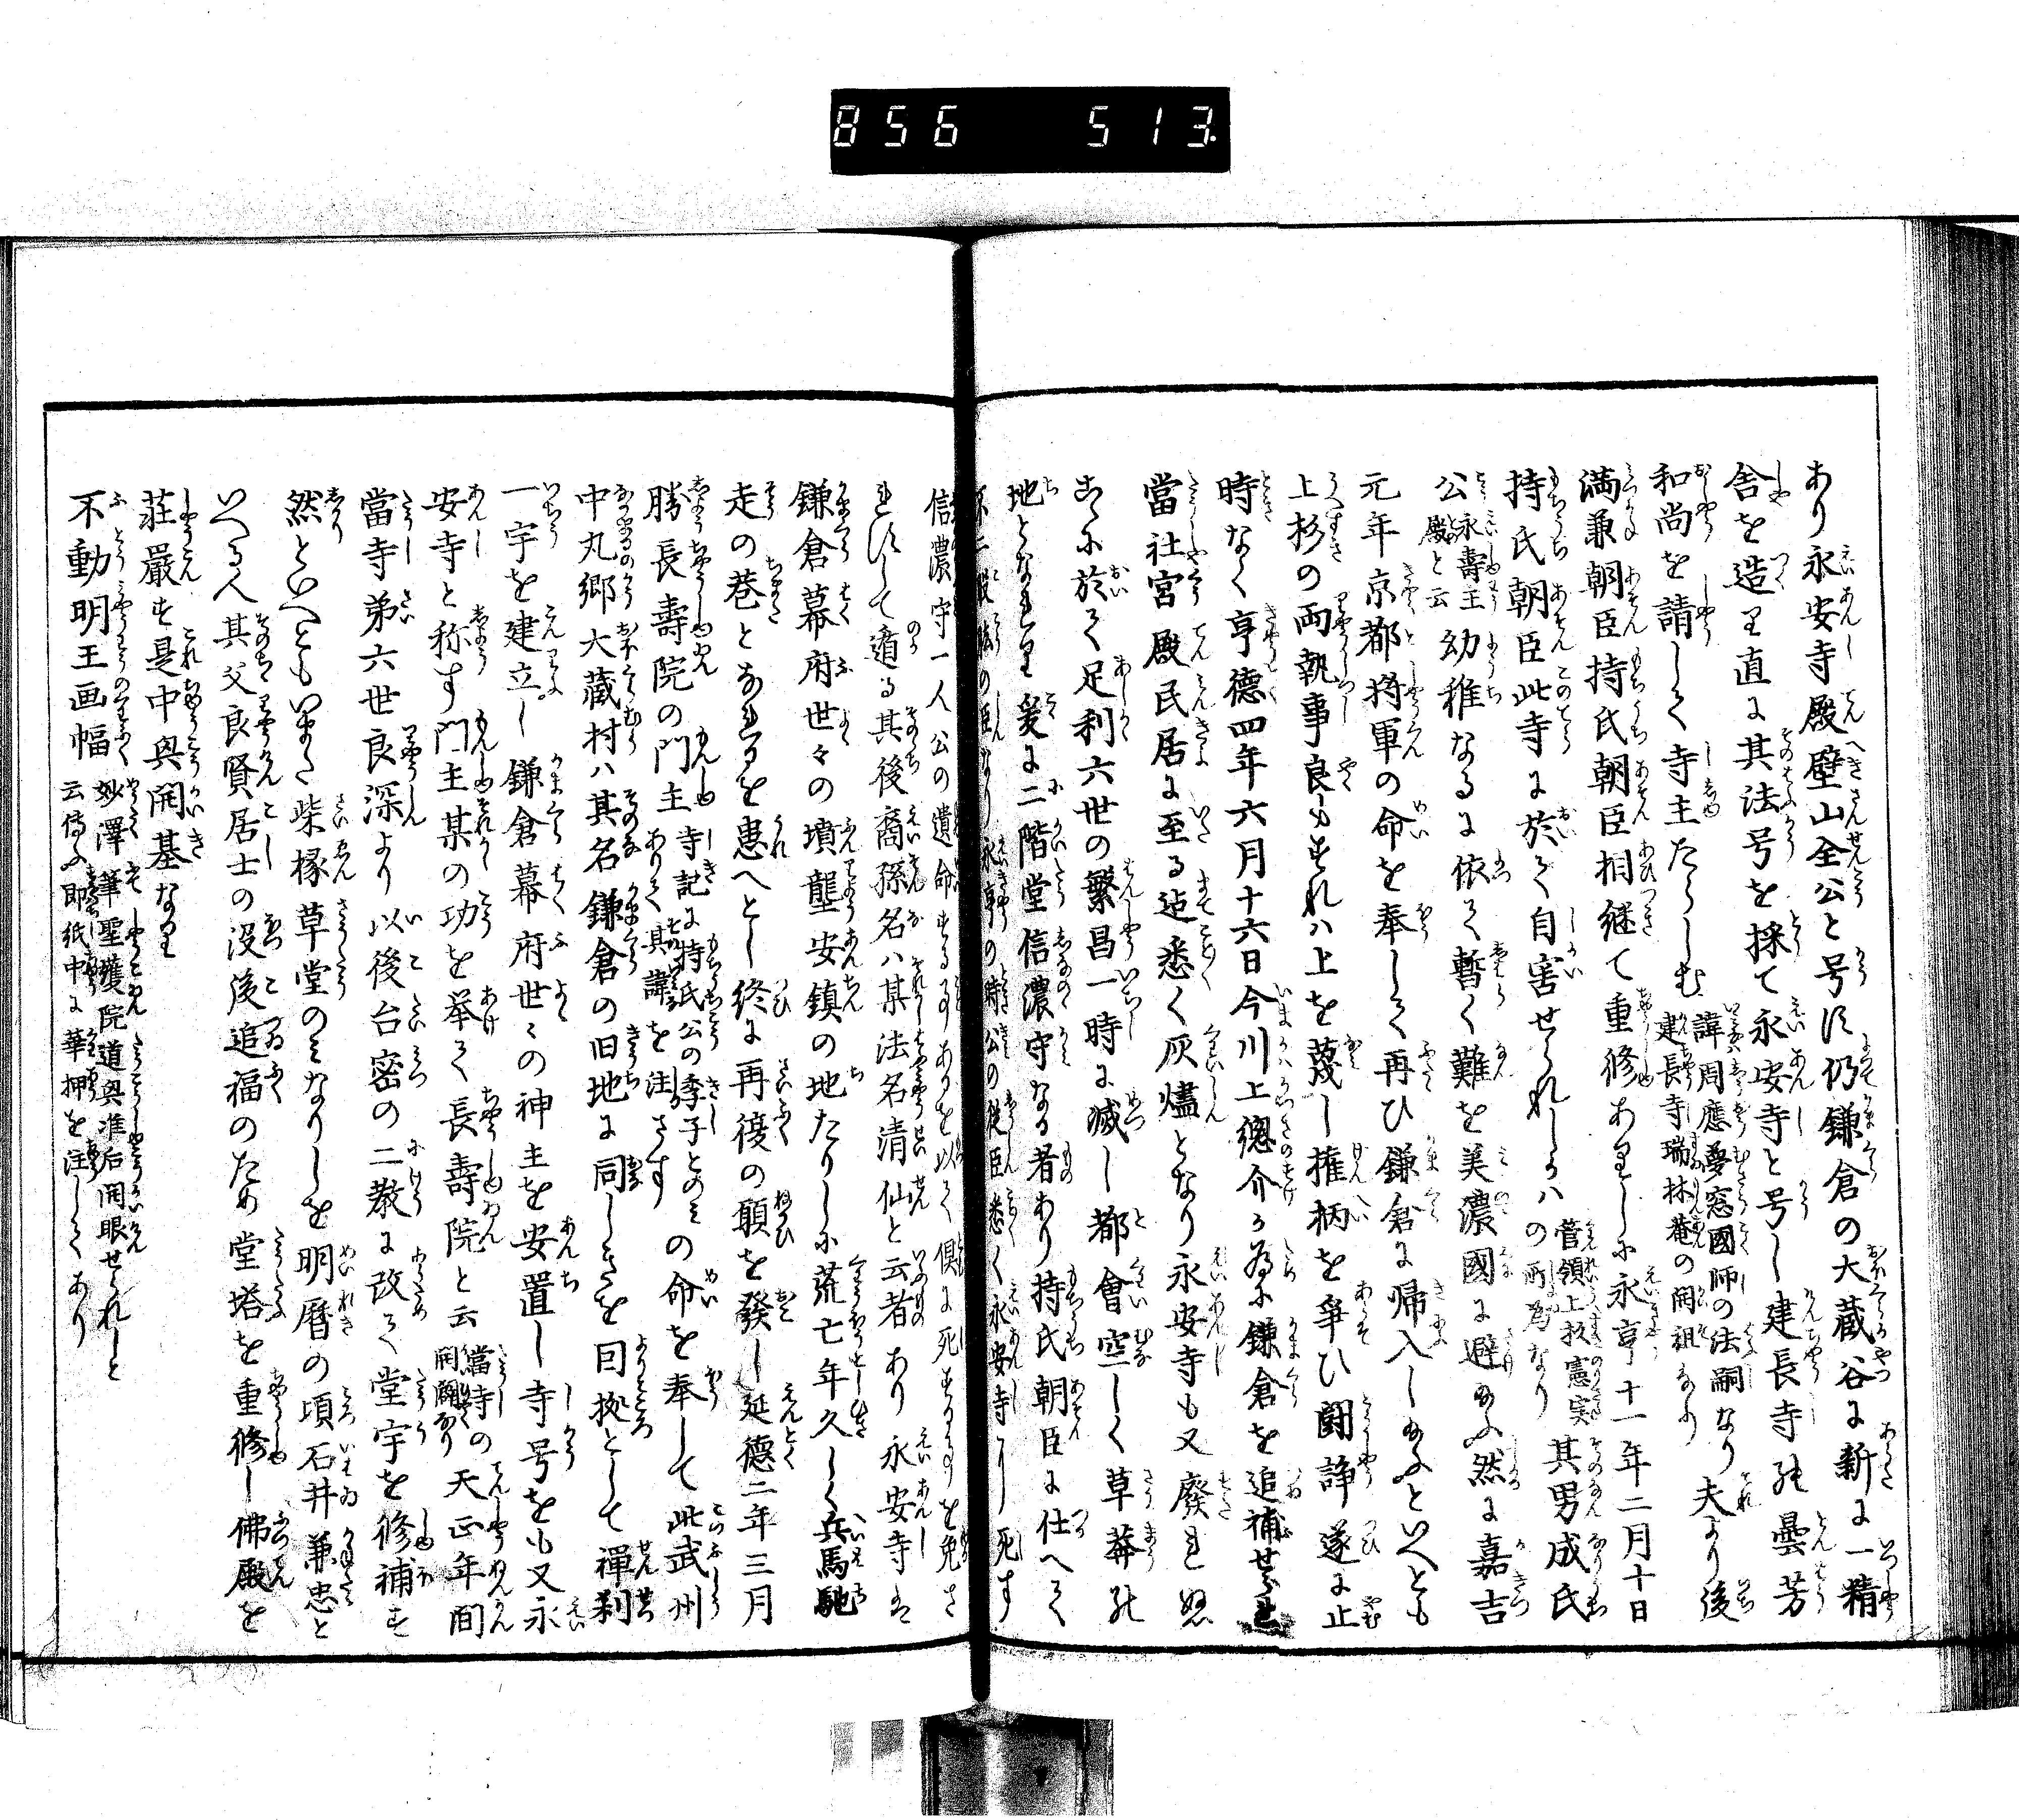 856 513
あり永安寺殿壁山全公と号す仍鎌倉の大蔵谷に新に一精
舎を造り直に其法号を採て永安寺と号し建長寺の曇芳
和尚を請して寺主たらしむ 諱周應夢窓國師の法嗣なり 建長寺瑞林菴の開祖なり 夫より後
満兼朝臣持氏朝臣相継て重修ありしに永享十一年二月十日
持氏朝臣此寺に於て自害せられしかハ 菅領上杦憲実 の所為なり 其男成氏
公 永壽王 殿と云 幼稚なるに依て暫く難を美濃國に避給ふ然に嘉吉
元年京都将軍の命を奉して再ひ鎌倉に帰入し給ふといへとも
上杉の両執事良もすれハ上を蔑し権柄を争ひ闘諍遂に止
時なく享德四年六月十六日今川上總介か為に鎌倉を追補せられ
當社宮殿民居に至る迠悉く灰燼となり永安寺も又廢れぬ
こゝに於て足利六世の繁昌一時に滅し都會空しく草莽の
地となれり爰に二階堂信濃守なる者あり持氏朝臣に仕へて
の臣なり永享の時公の従臣悉く永安寺に死す
信濃守一人公の遺命するありを以て倶に死することを免さ
れすして遁る其後裔孫名ハ某法名清仙と云者あり永安寺は
鎌倉幕府世々の墳壟安鎮の地たりしに荒亡年久しく兵馬馳
走の巷となれるを患へとし終に再復の願を發し延德二年三月
勝長壽院の門主 寺記に持氏公の季子とのみ ありて其諱を注さす の命を奉して此武州
中丸郷大蔵村ハ其名鎌倉の旧地に同しきを因拠として禪刹
一宇を建立し鎌倉幕府世々の神主を安置し寺号をも又永
安寺と称す門主某の功を挙て長壽院と云 當寺の 開闢なり 天正年間
當寺第六世良深より以後台密の二教に改て堂宇を修補す
然といへともいまた柴椽草堂のミなりしを明暦の頃石井兼忠と
いへる人其父良賢居士の没後追福のため堂塔を重修し佛殿を
荘嚴す是中興開基なり
不動明王画幅 妙澤筆聖護院道興准后開眼せられしと 云傳ふ即紙中に華押を注してあり